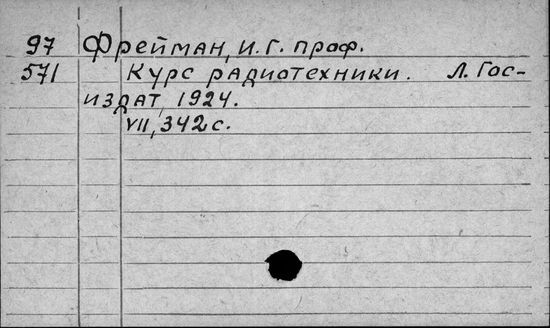 97 Фрейман, И.Г. проф.
571 Курс радиотехники. Л. Гос-
издат, 1924.
VII, 342 с.